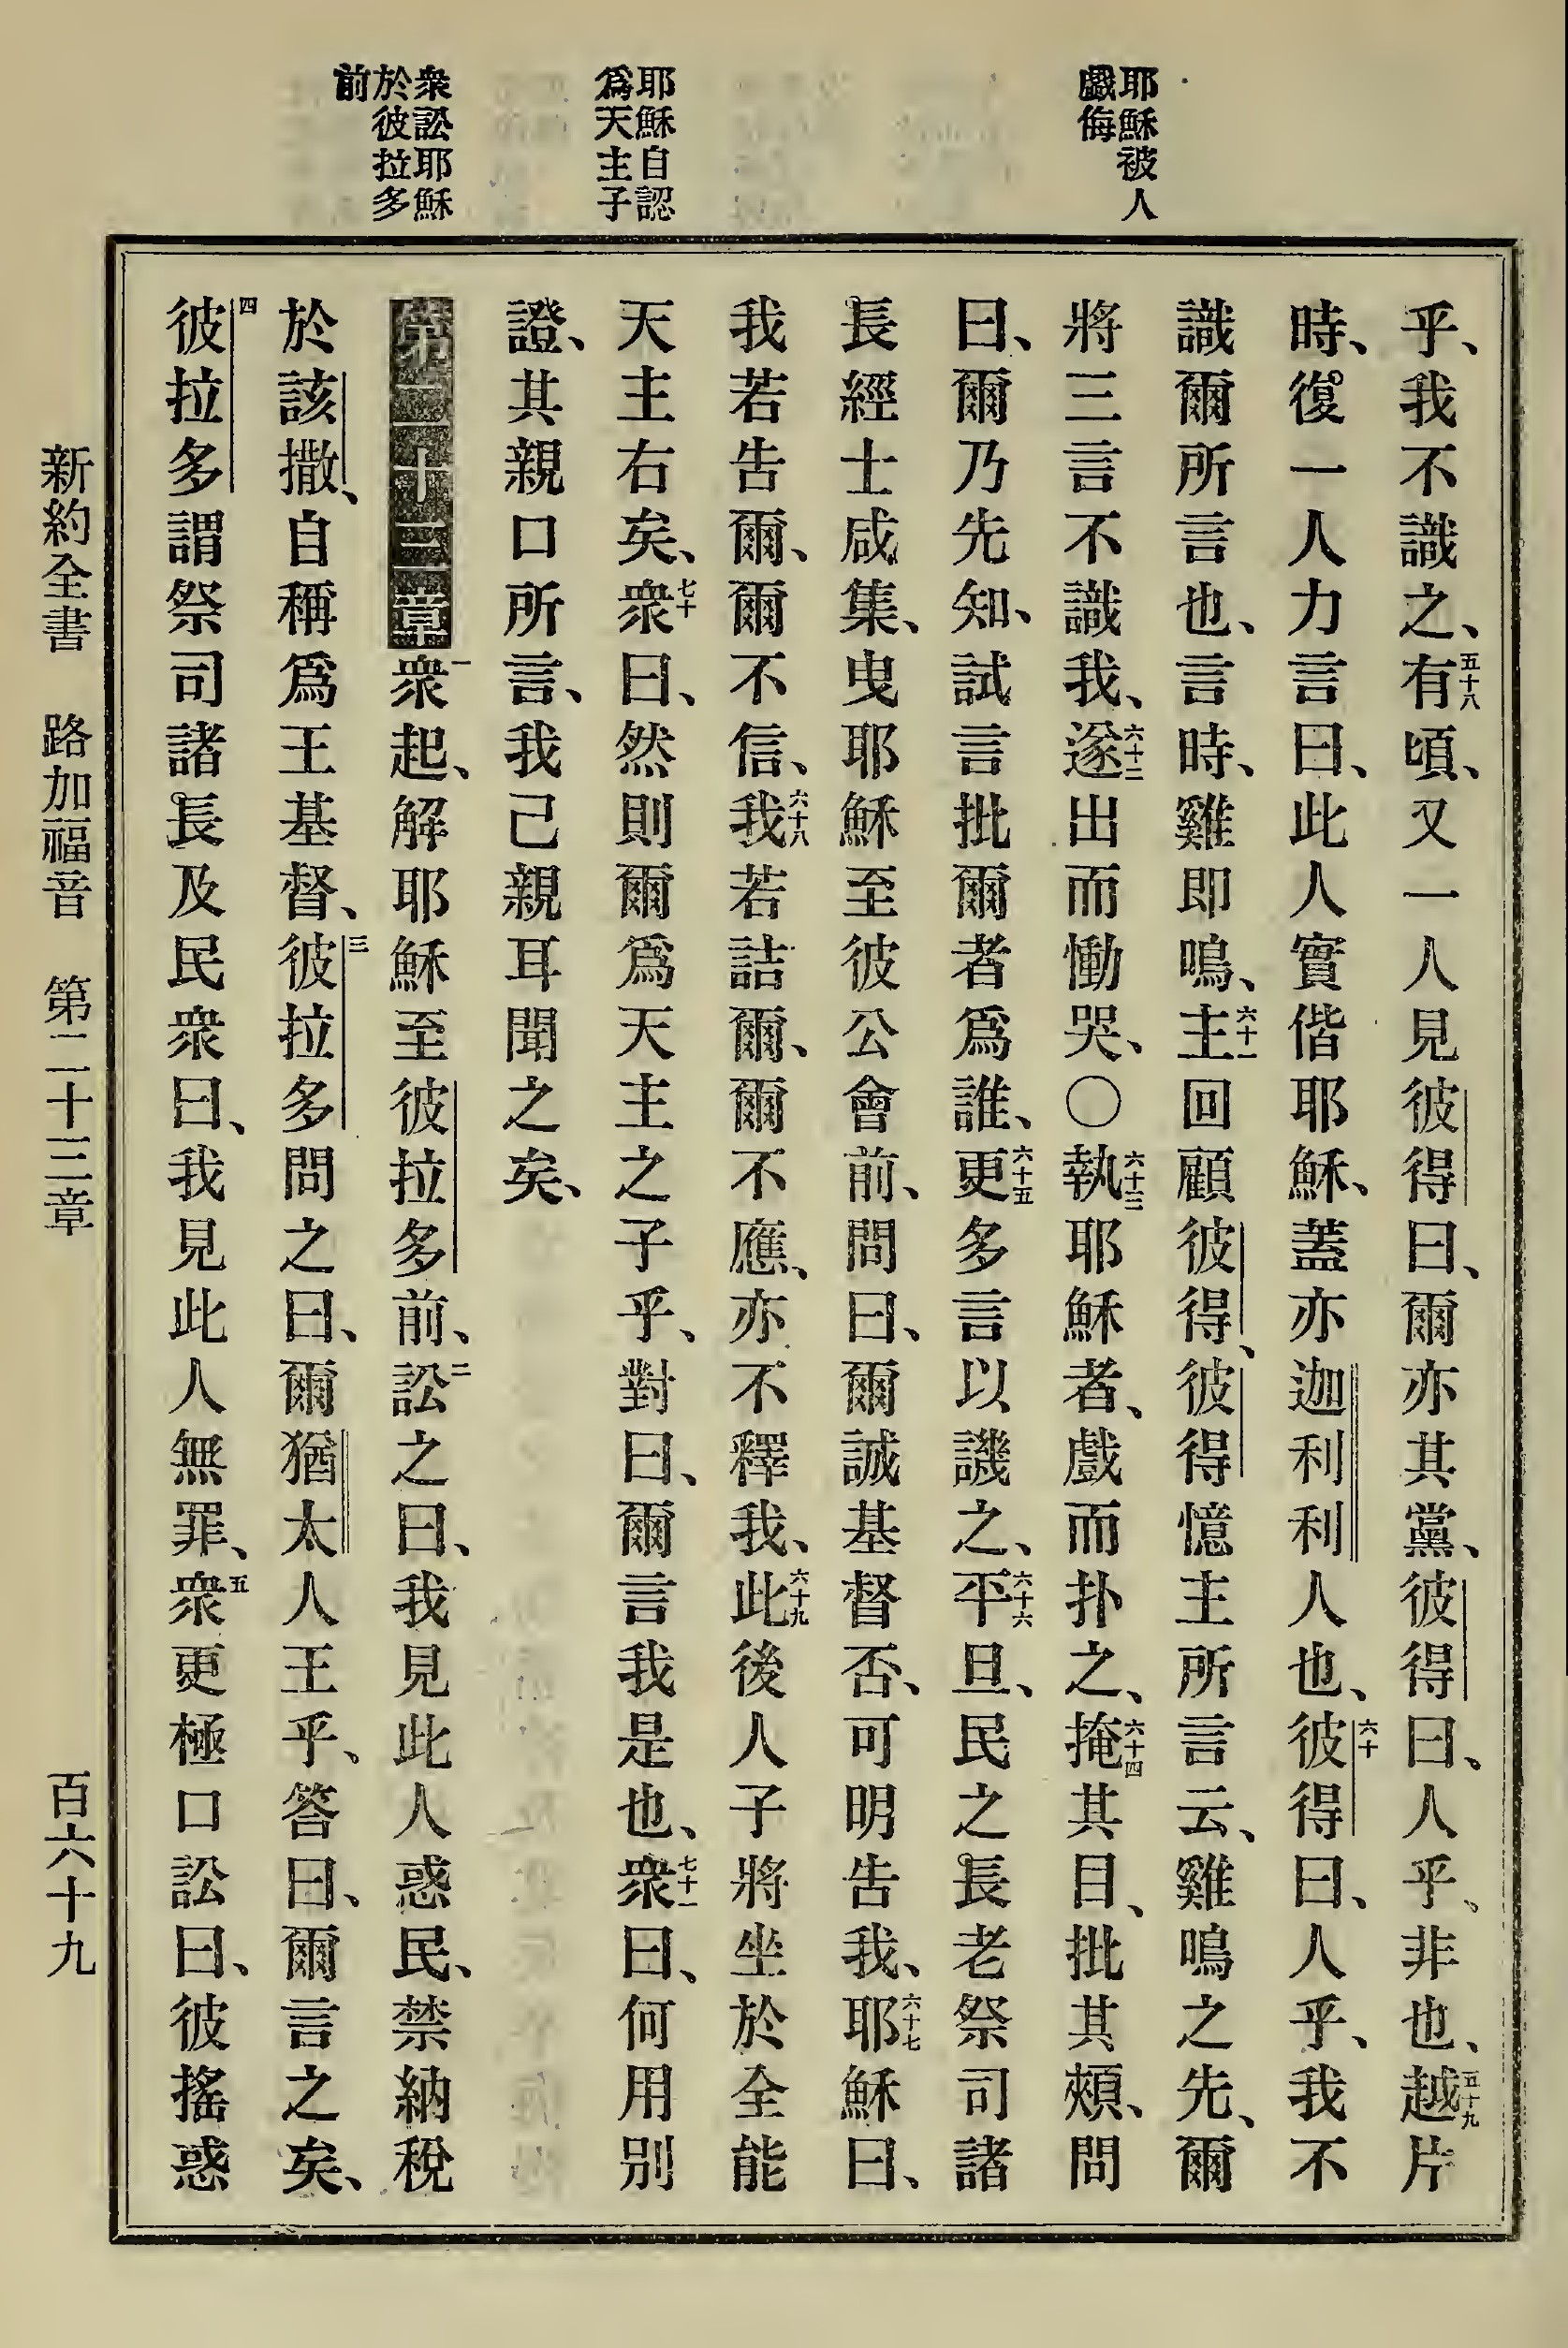 耶穌被人
戲侮
耶穌自認
爲天主子
衆訟耶穌
於彼拉多
前
乎、我不識之、五十八有頃、又一人見彼得曰、爾亦其黨、彼得曰、人乎、非也、五十九越片
時、復一人力言曰、此人實偕耶穌、蓋亦迦利利人也、六十彼得曰、人乎、我不
識爾所言也、言時、雞即鳴、六十一主回顧彼得、彼得憶主所言云、雞鳴之先、爾
將三言不識我、六十二遂出而慟哭、〇六十三執耶穌者、戲而扑之、六十四掩其目、批其頰、問
曰、爾乃先知、試言批爾者爲誰、六十五更多言以譏之、六十六平旦、民之長老祭司諸
長經士咸集、曳耶穌至彼公會前、問曰、爾誠基督否、可明告我、六十七耶穌曰、
我若告爾、爾不信、六十八我若詰爾、爾不應、亦不釋我、六十九此後人子將坐於全能
天主右矣、七十衆曰、然則爾爲天主之子乎、對曰、爾言我是也、七十一衆曰、何用別
證、其親口所言、我己親耳聞之矣、
第二十三章 一衆起、解耶穌至彼拉多前、二訟之曰、我見此人惑民、禁納稅
於該撒、自稱爲王基督、三彼拉多問之曰、爾猶太人王乎、答曰、爾言之矣、
四彼拉多謂祭司諸長及民衆曰、我見此人無罪、五衆更極口訟曰、彼搖惑
新約全書 路加福音 第二十三章 百六十九